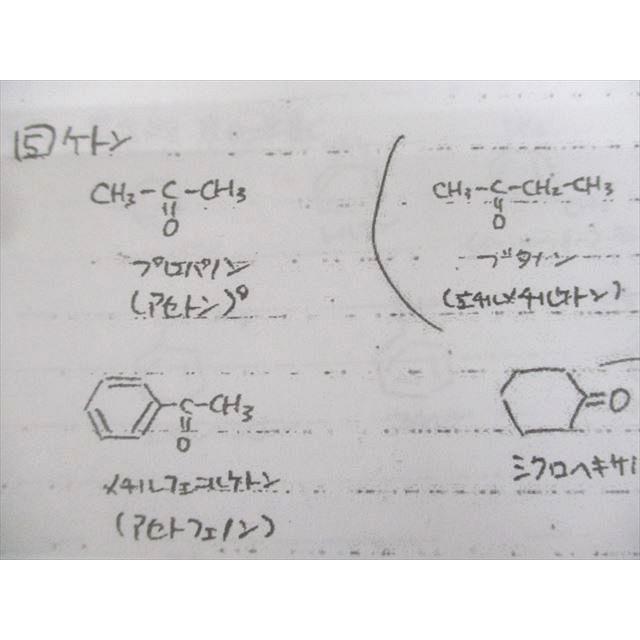 [5] ケトン
CH₃-C-CH₃
O
プロパノン
(アセトン)
CH₃-C-CH₂-CH₃
O
ブタノン
(エチルメチルケトン)
C-CH₃
O
メチルフェニルケトン
(アセトフェノン)
=O
シクロヘキサ